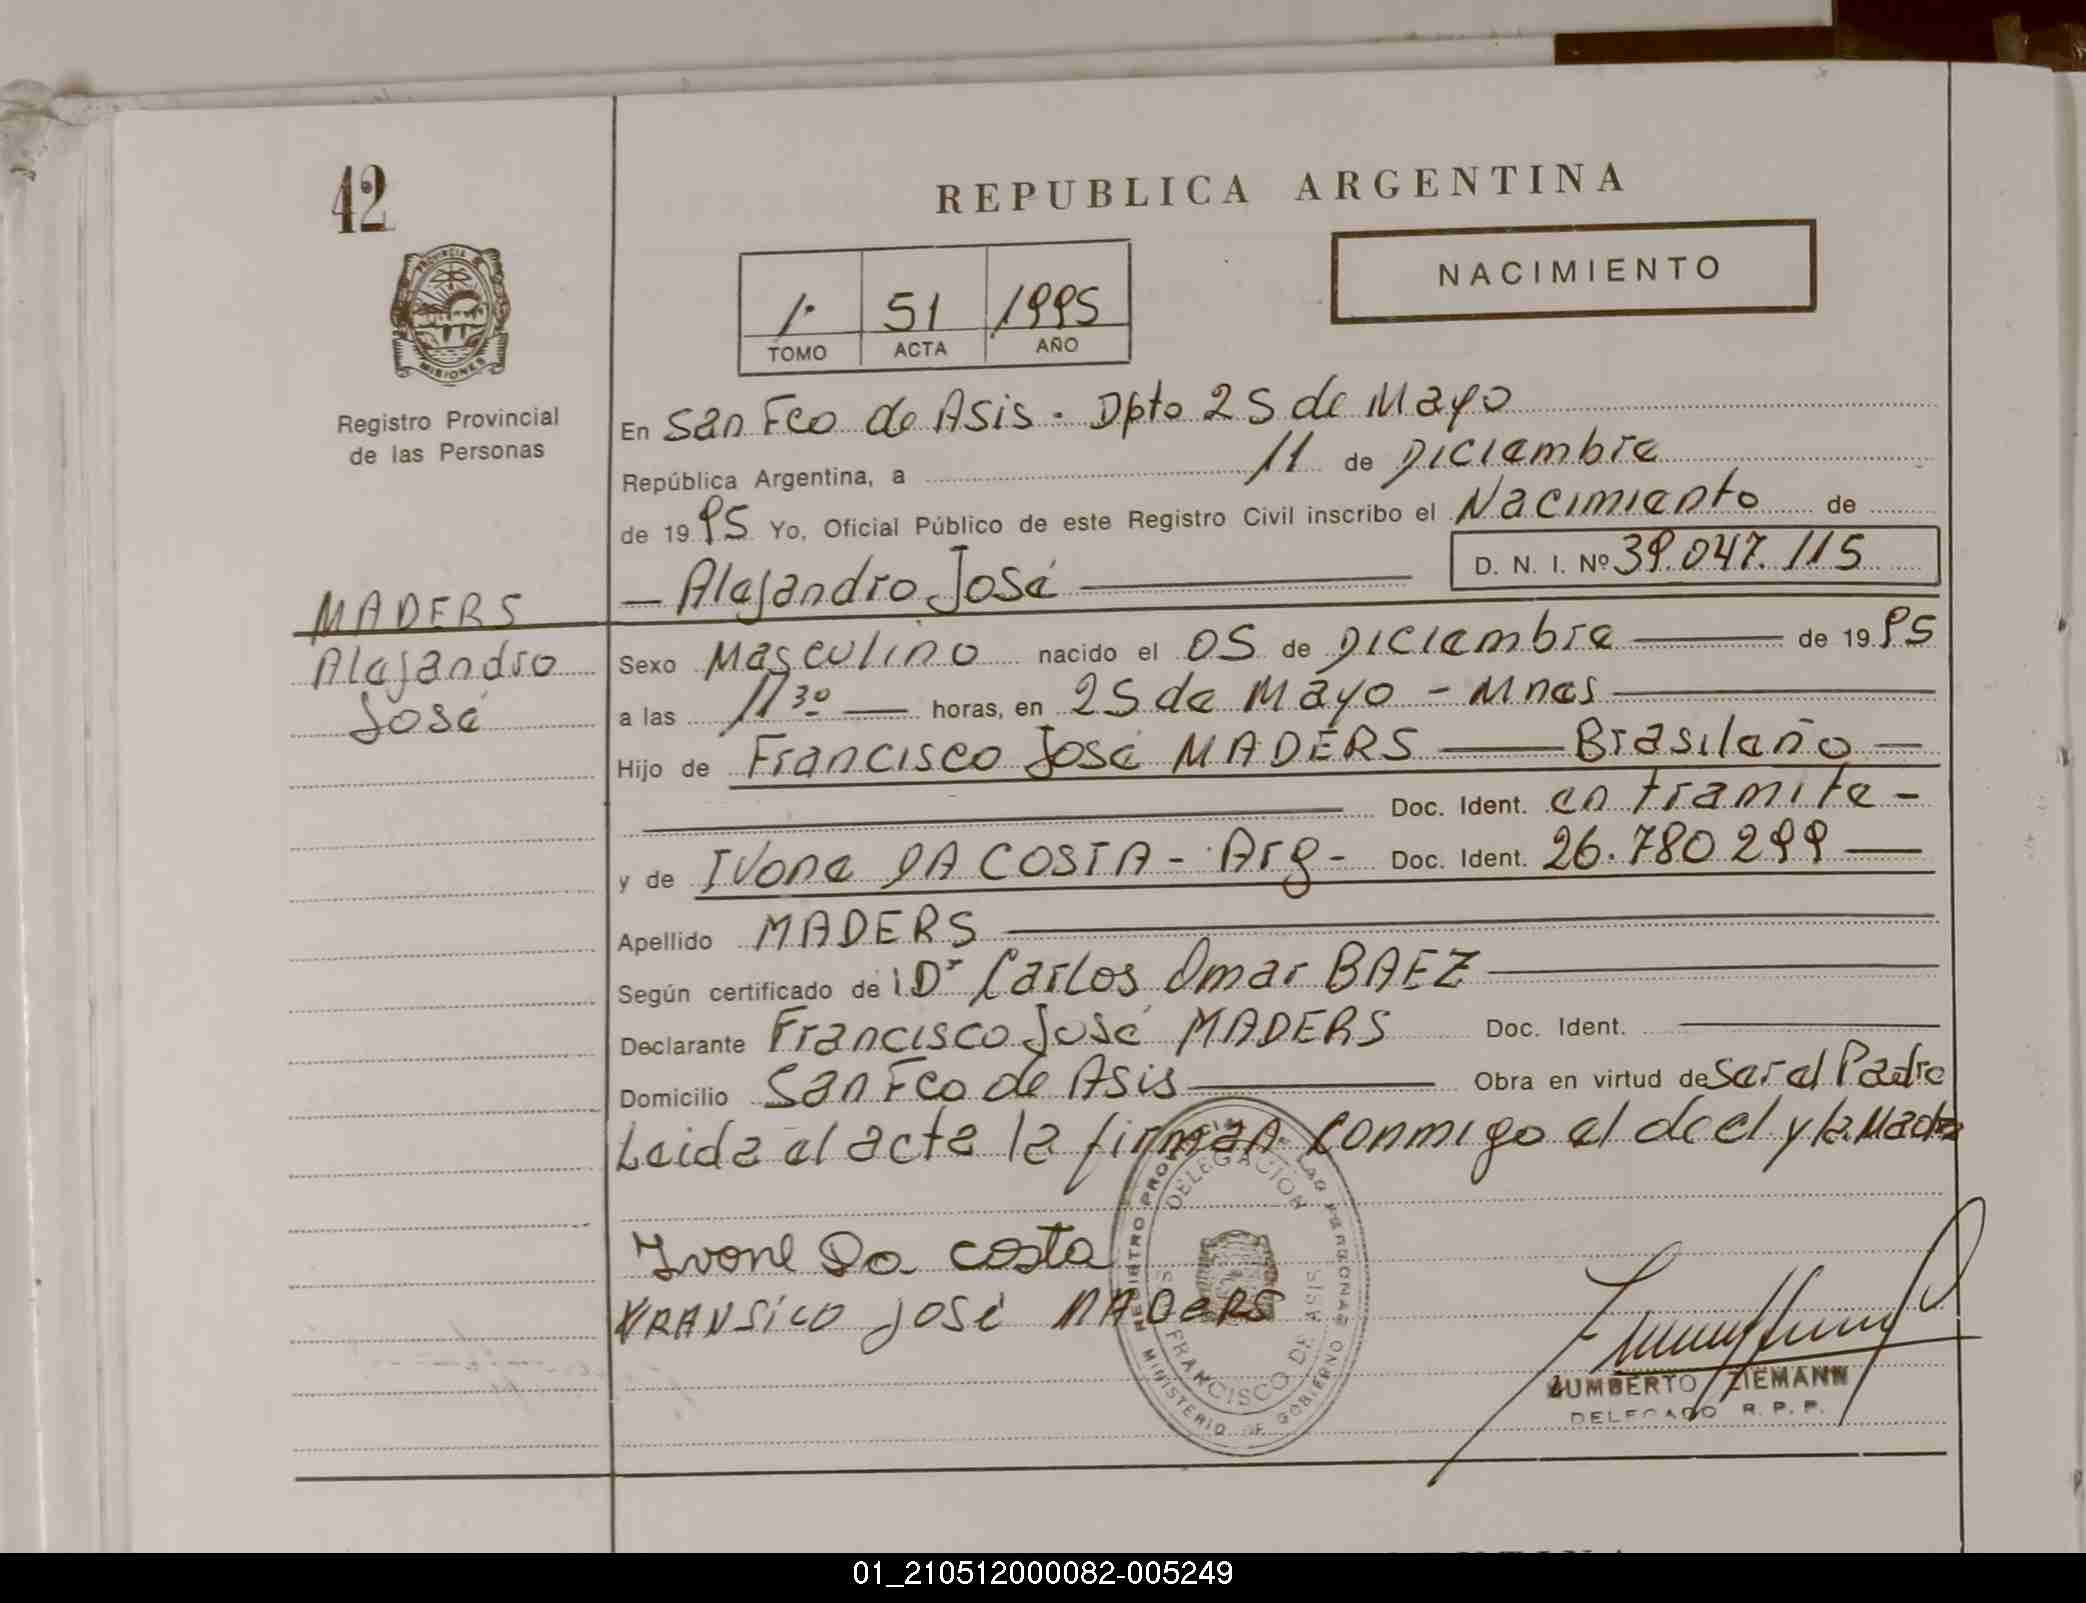 42
REPUBLICA ARGENTINA
NACIMIENTO
1· 51 1995
TOMO ACTA AÑO
PROVINCIA DE
MISIONES
Registro Provincial
de las Personas
En San Fco de Asis - Dpto 25 de Mayo
República Argentina, a 11 de Diciembre
de 1995 Yo, Oficial Público de este Registro Civil inscribo el Nacimiento de
D. N. I. Nº 39.047.115
— Alejandro José —
MADERS
Alejandro
José
Sexo Masculino nacido el 05 de Diciembre — de 1995
a las 11 30 — horas, en 25 de Mayo - Mnes —
Hijo de Francisco José MADERS — Brasileño —
— Doc. Ident. en tramite -
y de Ivone DA COSTA - Arg - Doc. Ident. 26.780299 —
Apellido MADERS —
Según certificado de 1 Dr Carlos Omar BAEZ —
Declarante Francisco José MADERS Doc. Ident. —
Domicilio San Fco de Asis — Obra en virtud de ser el Padre
Leida el acta la firman conmigo el decl y la Madre
Ivone Da costa
FRANSiCO José MADeRS
REGISTRO PROVINCIAL DE LAS PERSONAS
DELEGACION
FRANCISCO DE ASIS
MINISTERIO DE GOBIERNO
HUMBERTO ZIEMANN
DELEGADO R. P. P.
01_210512000082-005249